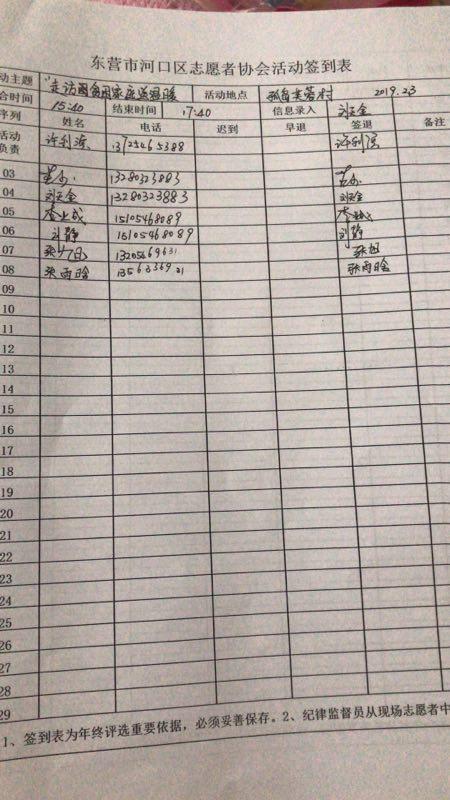 东营市河口区志愿者协会活动签到表
动主题 "走访困 家庭送温暖 活动地点 孤岛 村 2019.2.3
合时间 15:40 结束时间 17:40 信息录入 刘天全
序列 姓名 电话 迟到 早退 签退 备注
活动负责 许利强 13725465388 许利强
03 13280323883
04 刘天全 13280323883 刘天全
05 李业成 15105468089 李业成
06 刘静 15105468089 刘静
07 张旭 13205469631 张旭
08 张雨晗 张雨晗
09
10
11
12
13
14
15
16
17
18
19
20
21
22
23
24
25
26
27
28
29
1、签到表为年终评选重要依据，必须妥善保存。2、纪律监督员从现场志愿者中